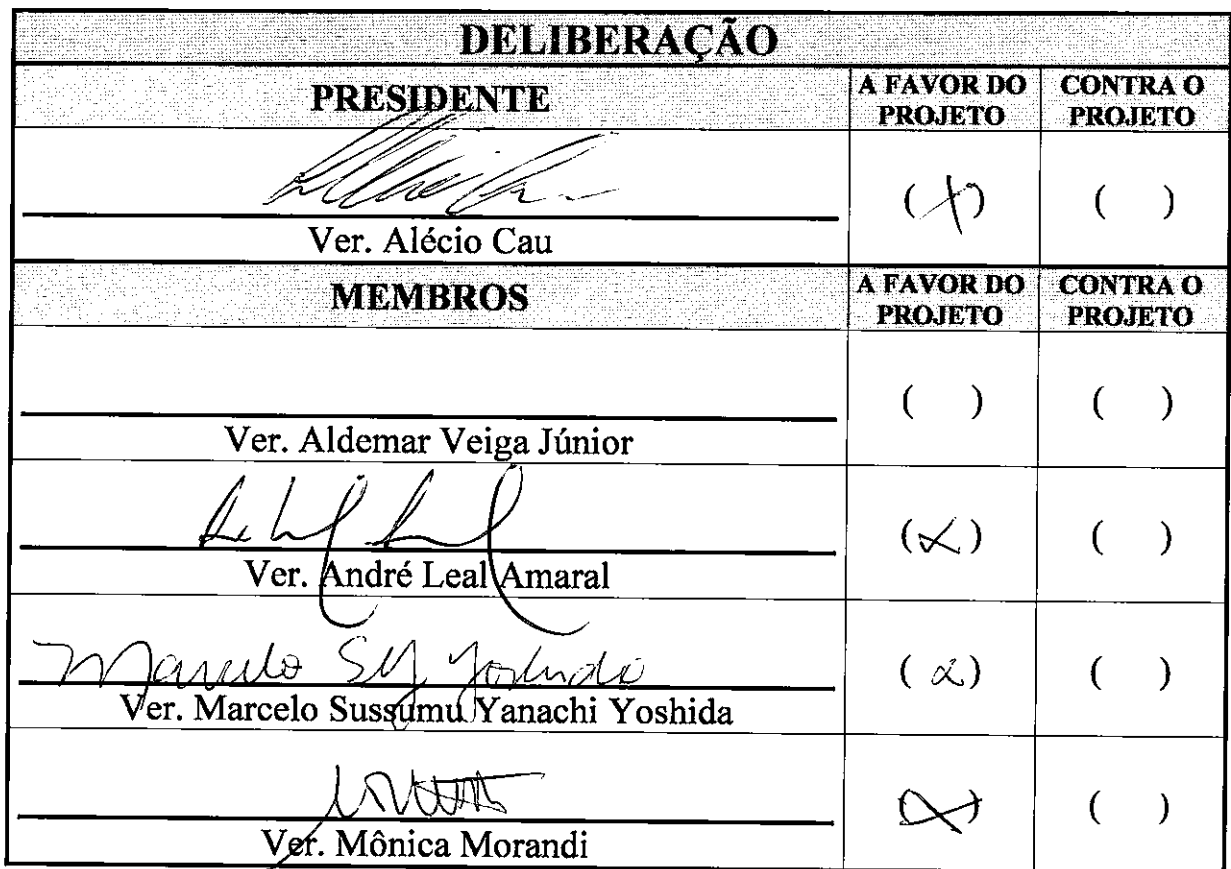 DELIBERAÇÃO
PRESIDENTE
A FAVOR DO PROJETO
CONTRA O PROJETO
( X ) ( )
Ver. Alécio Cau
MEMBROS
A FAVOR DO PROJETO
CONTRA O PROJETO
( ) ( )
Ver. Aldemar Veiga Júnior
( X ) ( )
Ver. André Leal Amaral
Marcelo SY Yoshida
( X ) ( )
Ver. Marcelo Sussumu Yanachi Yoshida
( X ) ( )
Ver. Mônica Morandi